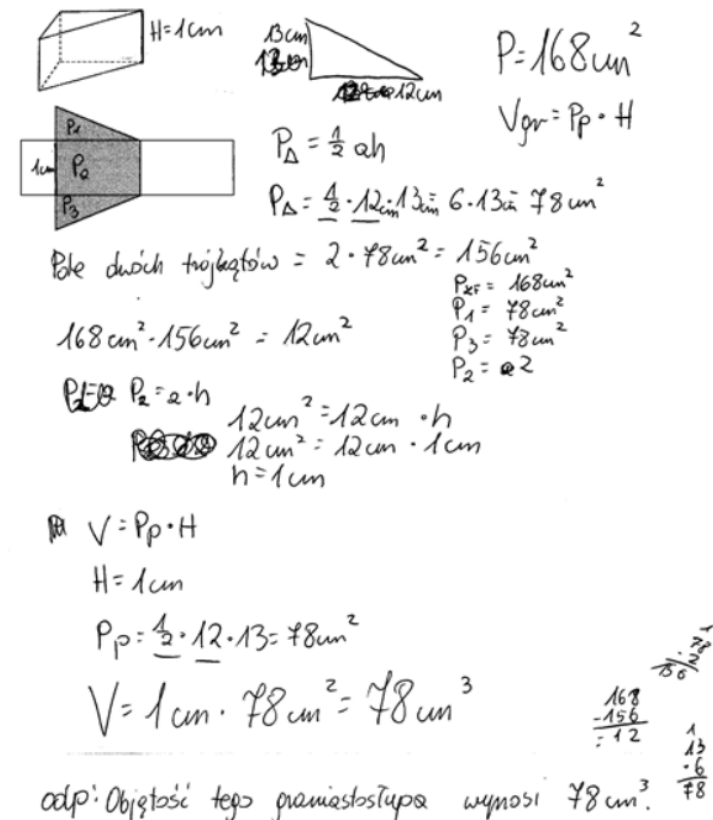 H=1cm
13cm
12cm
P=168cm²
Vgr=Pp·H
P1
1cm P2
P3
P△=½ah
P△=½·12cm·13cm=6·13cm=78cm²
Pole dwóch trójkątów = 2·78cm²=156cm²
168cm²-156cm²=12cm²
P1=78cm²
P3=78cm²
P2=2
P2=a·h
12cm²=12cm·h
12cm²=12cm·1cm
h=1cm
V=Pp·H
H=1cm
Pp=½·12·13=78cm²
V=1cm·78cm²=78cm³
1
78
·2
156
168
-156
=12
1
13
·6
78
odp: Objętość tego graniastosłupa wynosi 78cm³.